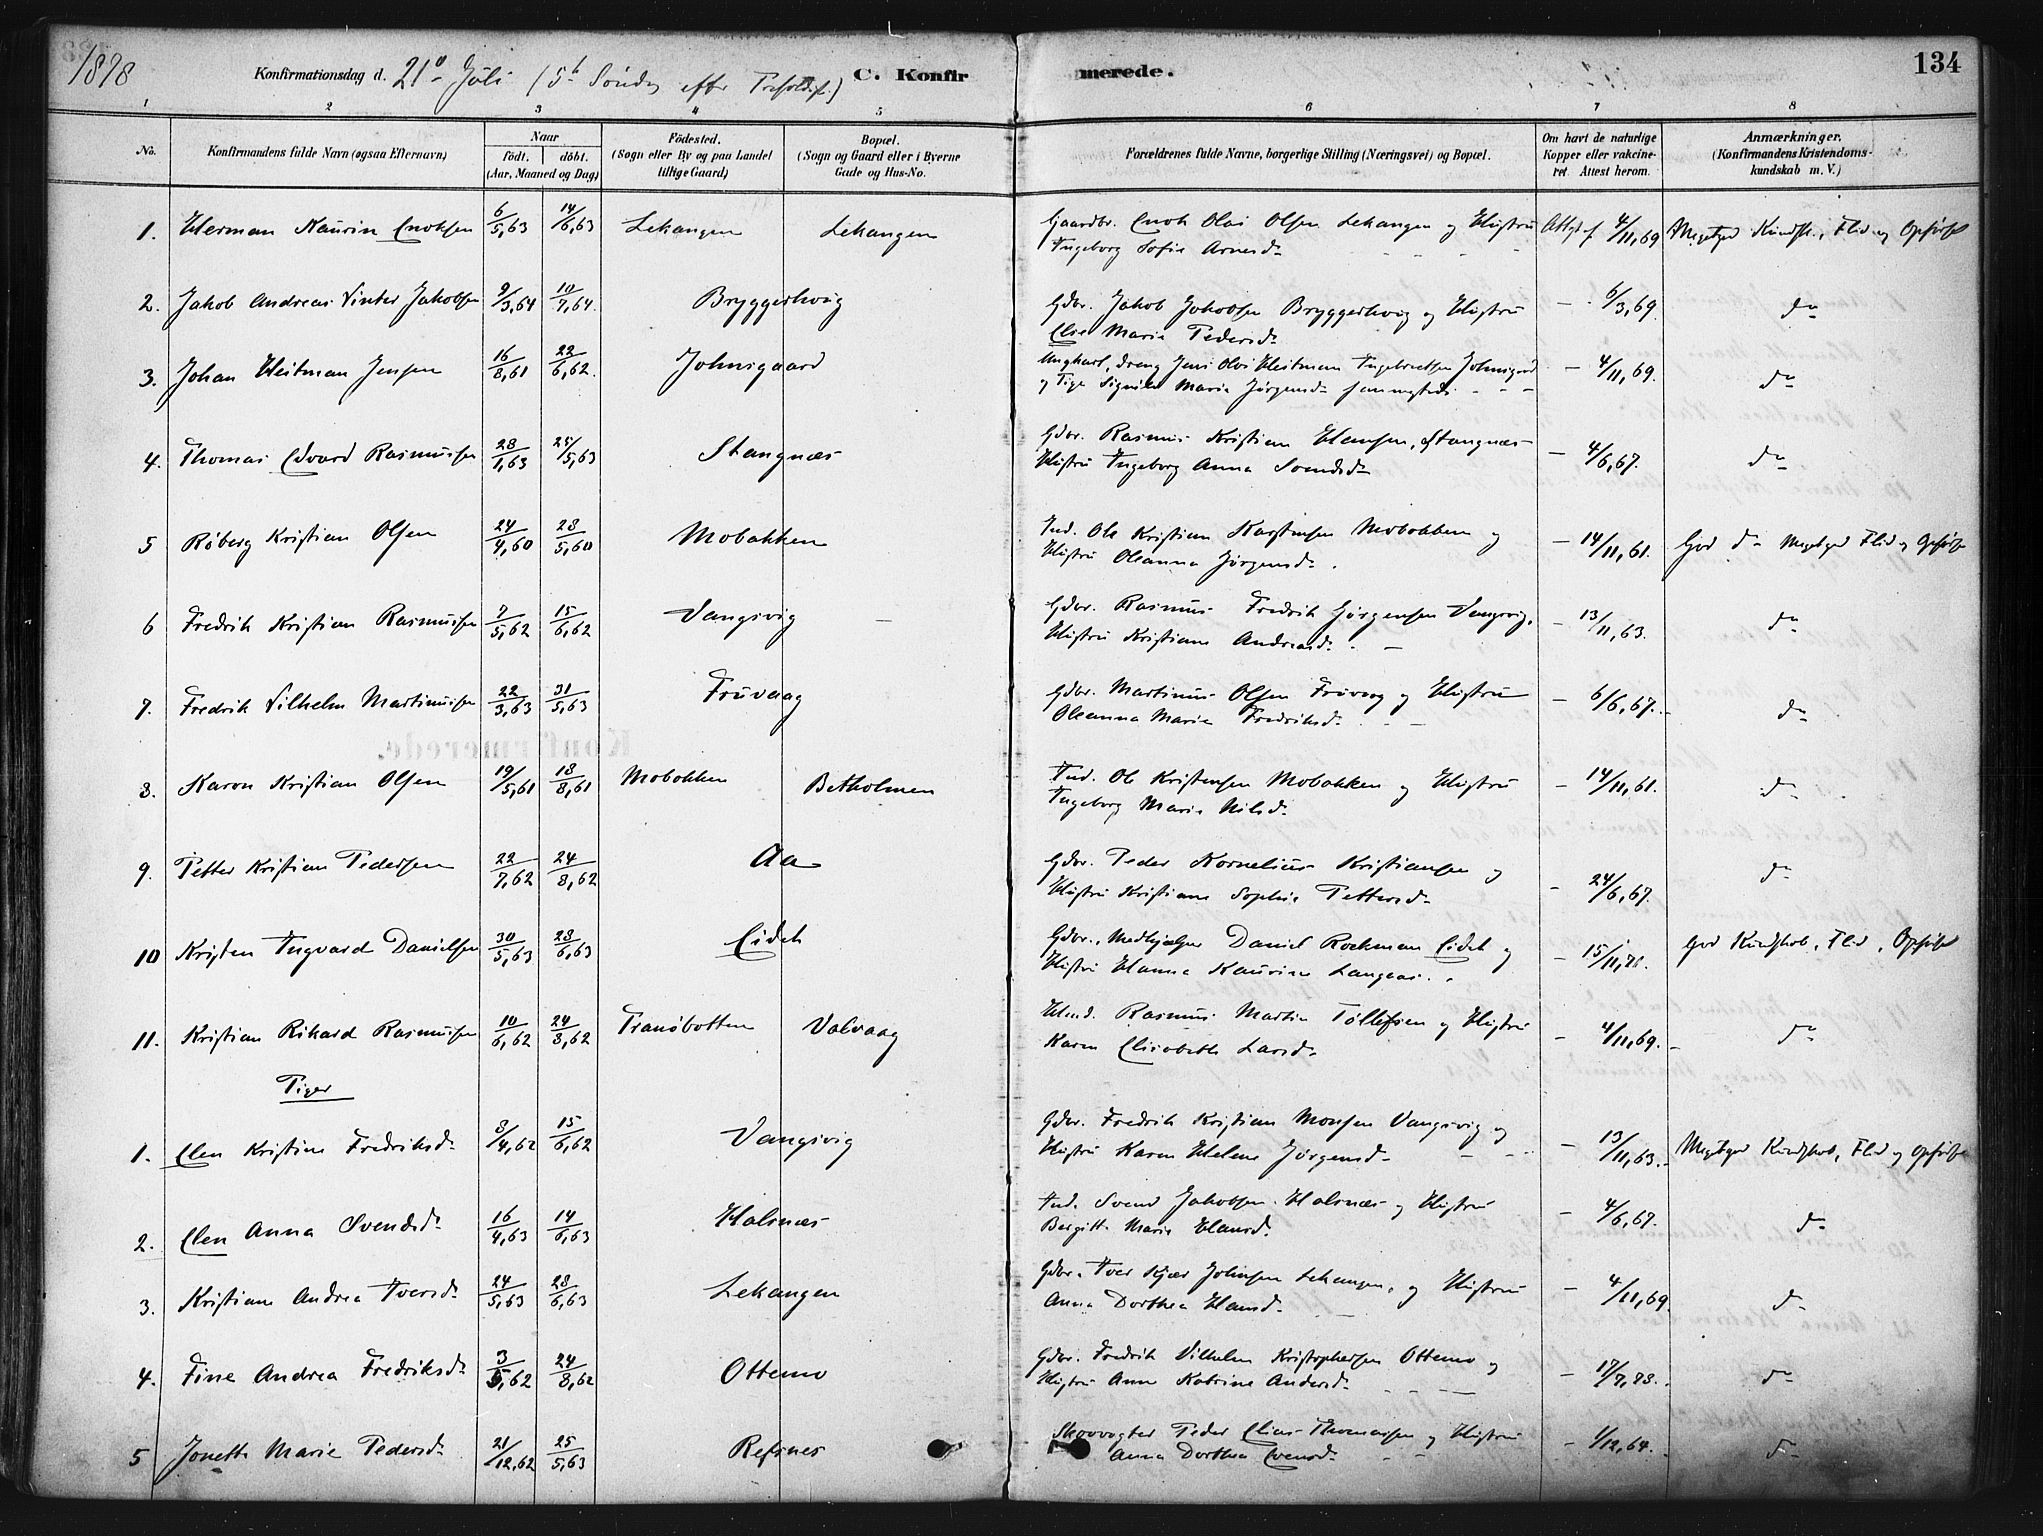 1878 Konfirmationsdag d. 21de Juli (5te Søndag efter Trefoldigh.) C. Konfirmerede. 134
1 2 3 4 5 6 7 8
No. Konfirmandens fulde Navn (ogsaa Efternavn) Naar födt. döbt. (Aar, Maaned og Dag) Födested. (Sogn eller By og paa Landet tillige Gaard) Bopæl. (Sogn og Gaard eller i Byerne Gade og Hus-No. Forældrenes fulde Navne, borgerlige Stilling (Næringsvei) og Bopæl. Om havt de naturlige Kopper eller vakcineret. Attest herom. Anmærkninger. (Konfirmandens Kristendomskundskab m. V.)
1. Herman Kaurin Enoksen 6/5,63 14/6,63 Lekangen Lekangen Gaardbr. Enok Olai Olsen Lekangen og Hustru Attest af 4/11,69 Megetgod Kundsk., Flid og Opførsel
Ingeborg Sofie Arnesd.
2. Jakob Andreas Vinter Jakobsen 9/3,64 10/7,64. Bryggerhvig Gdbr. Jakob Jakobsen Bryggerhvig og Hustru — 6/3,69. do
Else Maria Pedersd.
3. Johan Heitman Jensen 16/8,61 22/6,62. Johnsgaard Ungkarl, dreng Jens Olai Heitman Ingebretsen Johnsgard — 4/11,69. do
og Pige Signild Maria Jørgensd. sammesteds
4. Thomas Edvard Rasmussen 28/1,63 25/5,63 Stangnæs Gdbr. Rasmus Kristian Hansen, Stangnæs — 4/6,67. do
Hustru Ingeborg Anna Svendsd.
5 Røberg Kristian Olsen 24/4,60 28/5,60 Mobakken Ind. Ole Kristian Karstensen Mobakken og — 14/11,61. God do Megetgod Flid og Opførsel
Hustru Oleanna Jørgensd.
6 Fredrik Kristian Rasmussen 7/5,62 15/6,62 Vangsvig Gdbr. Rasmus Fredrik Jørgensen Vangsvig, — 13/11,63. do
Hustru Kristiane Andreasd.
7. Fredrik Vilhelm Martinussen 22/3,63 31/5,63 Fruvaag Gdbr. Martinus Olsen Fruvaag og Hustru — 6/6,67. do
Oleanna Maria Fredriksd.
8. Karon Kristian Olsen 19/5,61 18/8,61 Mobakken Betholmen Ind. Ole Kristensen Mobakken og Hustru — 14/11,61. do
Ingeborg Maria Nilsd.
9. Petter Kristian Pedersen 22/7,62 24/8,62 Aa Gdbr. Peder Kornelius Kristiansen og — 24/6,67. do
Hustru Kristiane Sophie Pettersd.
10 Kristen Ingvard Danielsen 30/5,63 28/6,63 Eidet Gdbr., Medhjælper Daniel Rockman Eidet og — 15/11,78. God Kundskab, Flid, Opførsel
Hustru Hanna Kaurine Langaas.
11. Kristian Rikard Rasmussen 10/6,62 24/8,62 Tranøbotten Valvaag Hmd. Rasmus Martin Tollefsen og Hustru — 4/11,69. do
Karen Elisabeth Larsd.
Piger
1. Elen Kristine Fredriksd. 8/4,62 15/6,62 Vangsvig Gdbr. Fredrik Kristian Monsen Vangsvig og — 13/11,63. Megetgod Kundskab, Flid og Opførsel
Hustru Karen Helene Jørgensd.
2. Elen Anna Svendsd. 16/4,63 14/6,63 Halsnæs Ind. Svend Jakobsen Halsnæs og Hustru — 4/6,67. do
Bergitte Maria Hansd.
3. Kristiane Andrea Iversd. 24/5,63 28/6,63 Lekangen Gdbr. Iver Kjær Johnsen Lekangen, og Hustru — 4/11,69. do
Anna Dorthea Hansd.
4. Fine Andrea Fredriksd. 3/5,62 24/8,62 Ottemo Gdbr. Fredrik Vilhelm Kristophersen Ottemo og — 17/7,78. do
Hustru Anne Katrine Andersd.
5 Jonette Marie Pedersd. 21/12,62 25/5,63 Refsnes Skovvogter Peder Elias Thomassen og Hustru — 1/12,64. do
Anna Dorthea Evensd.